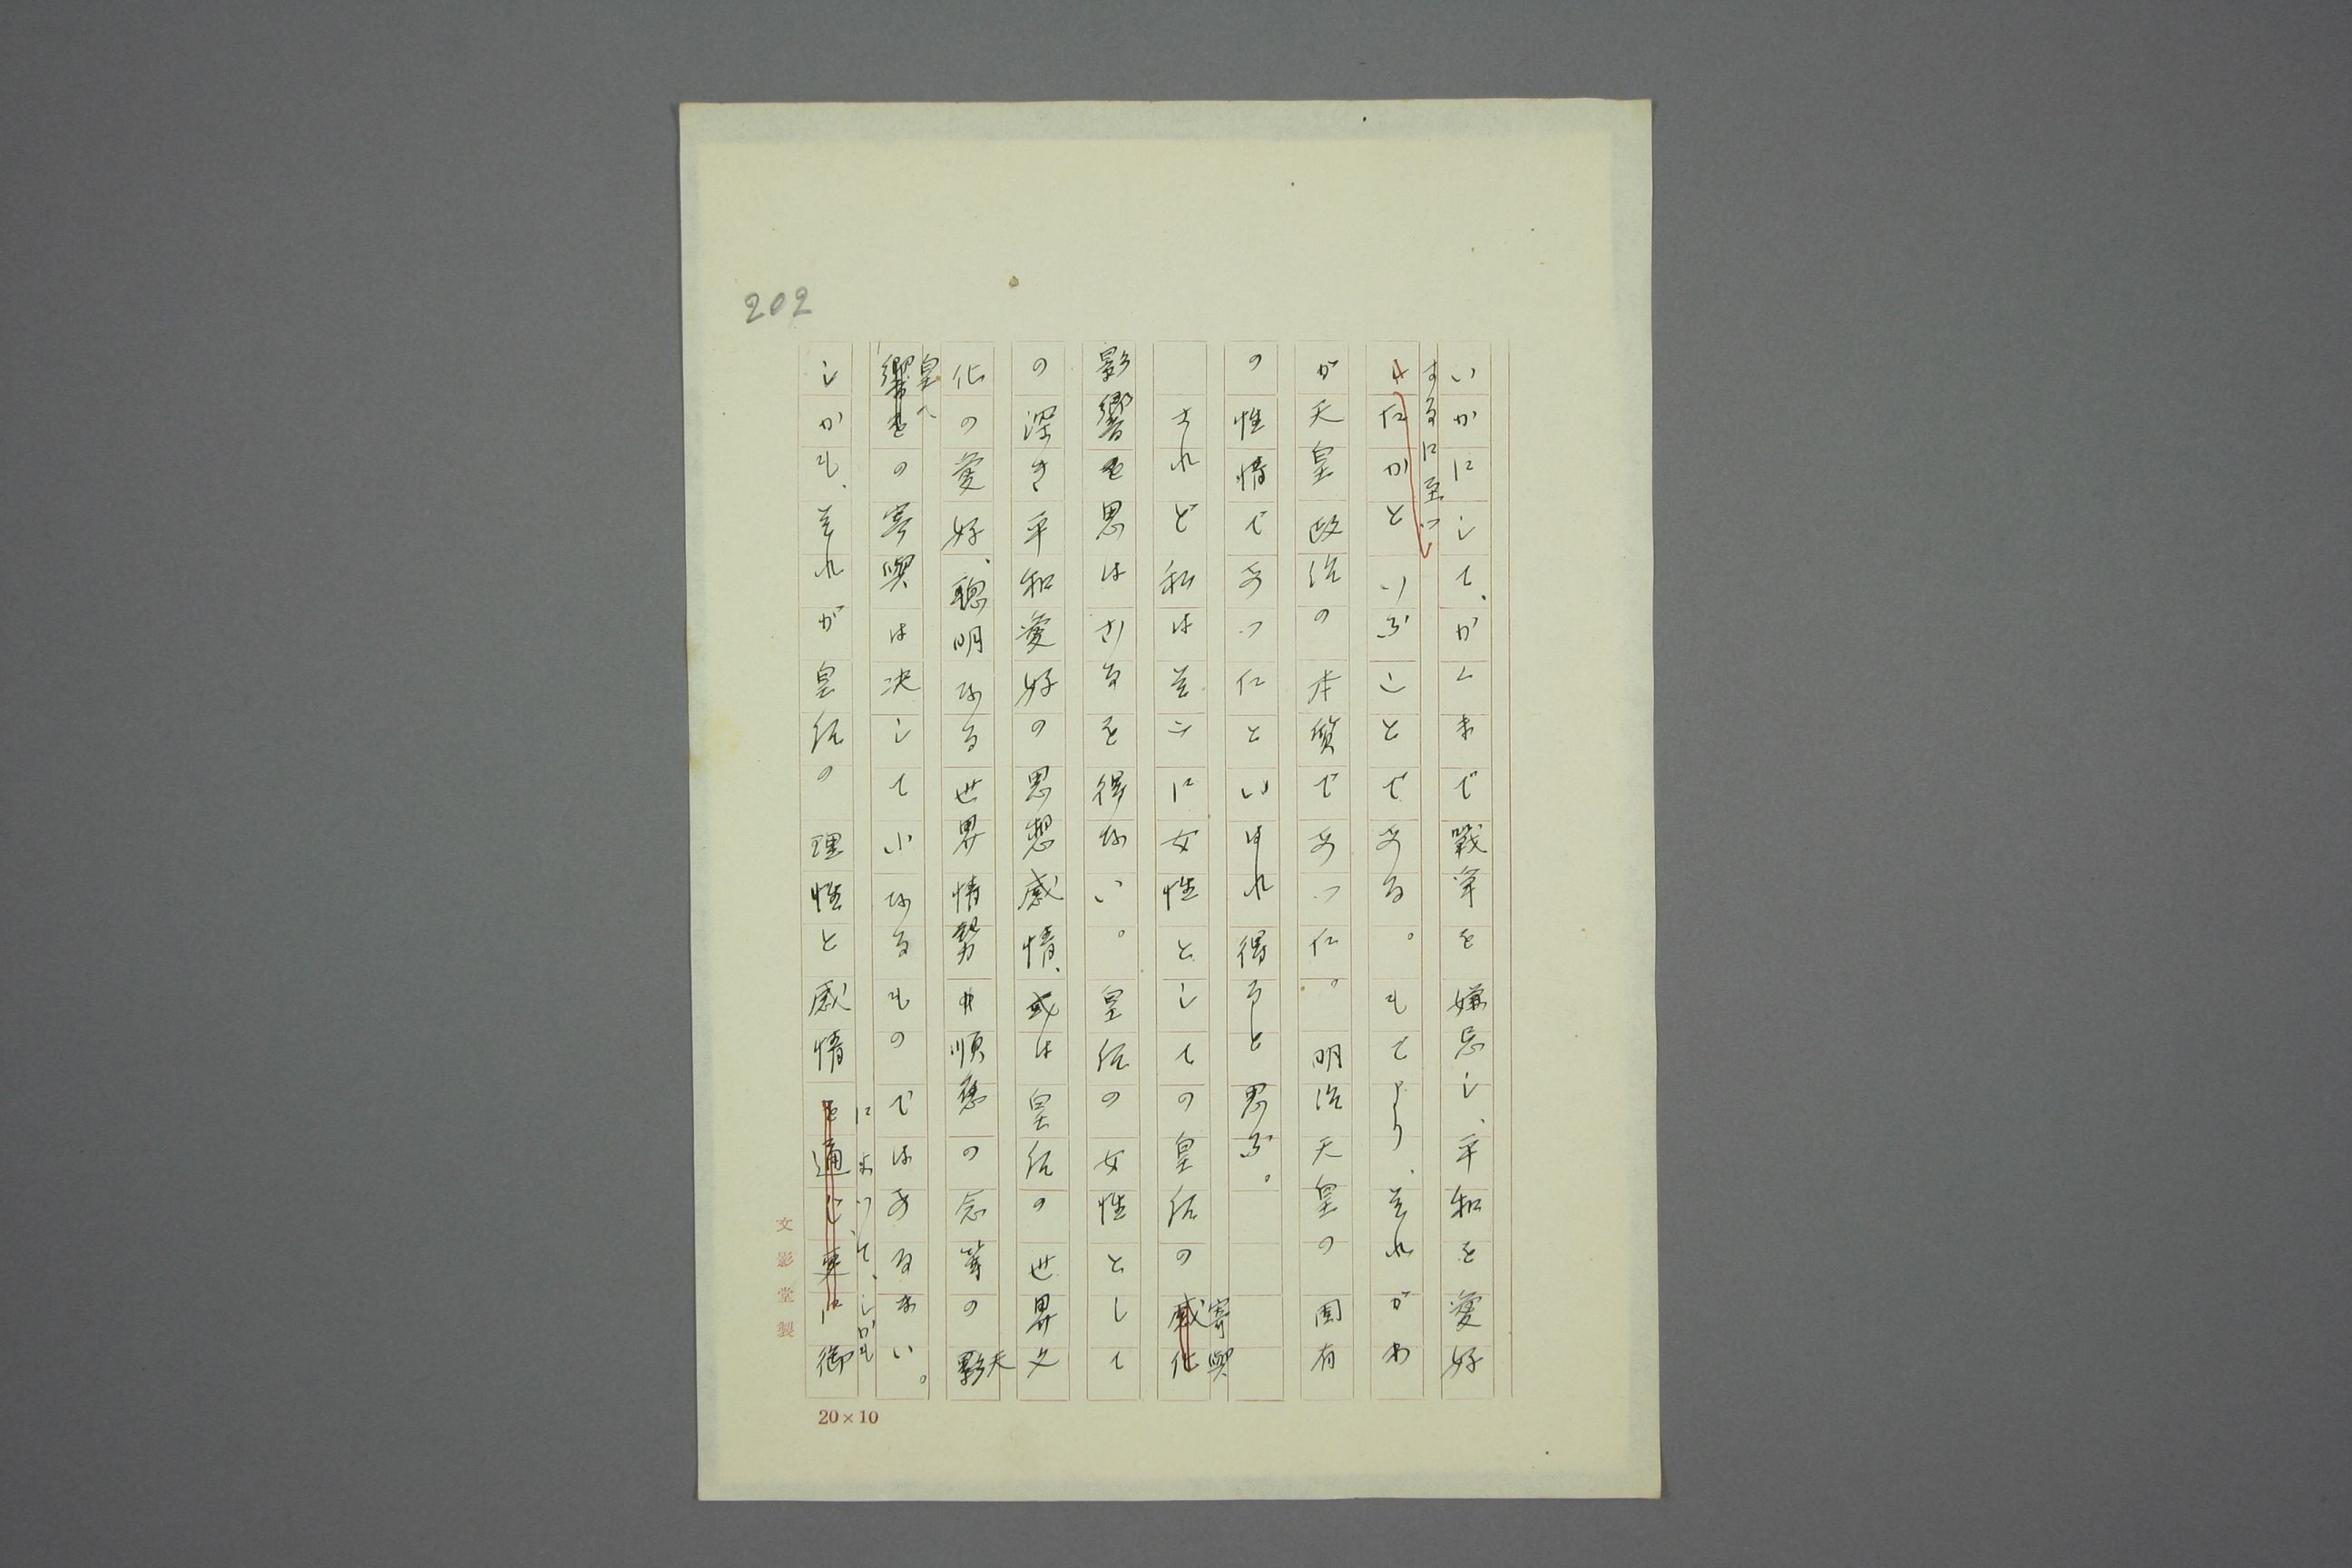 202
いかにして、かくまで戰争を嫌忌し、平和を愛好
するに至つ
たかといふことである。もとより、それがわ
が天皇政治の本質であつた。明治天皇の固有
の性情であつたといはれ得ると思ふ。
されど私はそこに女性としての皇后の感化
寄與
影響を思はざるを得ない。皇后の女性として
の深き平和愛好の思想感情、或は皇后の世界文
化の愛好、聰明なる世界情勢順應の念等の影
天
皇へ
響をの寄與は決して小なるものではあるまい。
しかも、それが皇后の理性と感情を通じ、更に御
によつて、しかも
文影堂製
20×10